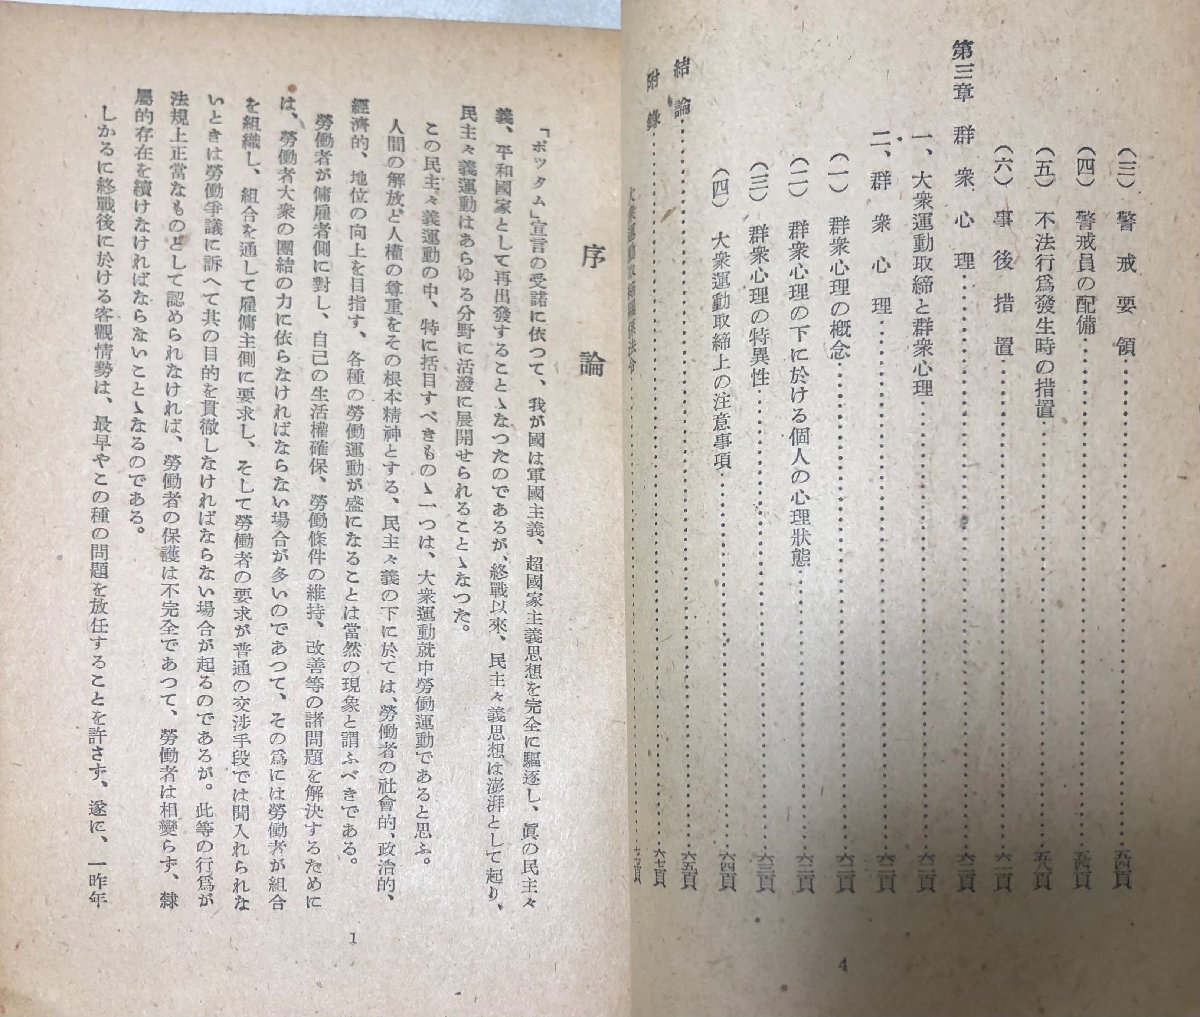 (三) 警戒要領…………五四頁
(四) 警戒員の配備…………五四頁
(五) 不法行爲發生時の措置…………五八頁
(六) 事後措置…………六一頁
第三章 群衆心理…………六二頁
一、大衆運動取締と群衆心理…………六二頁
二、群衆心理…………六二頁
(一) 群衆心理の概念…………六二頁
(二) 群衆心理の下に於ける個人の心理狀態…………六二頁
(三) 群衆心理の特異性…………六三頁
(四) 大衆運動取締上の注意事項…………六四頁
結論…………六五頁
附錄…………六七頁
大衆運動取締關係法令…………
4
序論
「ポツダム」宣言の受諾に依つて、我が國は軍國主義、超國家主義思想を完全に驅逐し、眞の民主々
義、平和國家として再出發することゝなつたのであるが、終戰以來、民主々義思想は澎湃として起り、
民主々義運動はあらゆる分野に活潑に展開せられることゝなつた。
この民主々義運動の中、特に括目すべきものゝ一つは、大衆運動就中勞働運動であると思ふ。
人間の解放と人權の尊重をその根本精神とする、民主々義の下に於ては、勞働者の社會的、政治的、
經濟的、地位の向上を目指す、各種の勞働運動が盛になることは當然の現象と謂ふべきである。
勞働者が傭雇者側に對し、自己の生活權確保、勞働條件の維持、改善等の諸問題を解決するために
は、勞働者大衆の團結の力に依らなければならない場合が多いのであつて、その爲には勞働者が組合
を組織し、組合を通して雇傭主側に要求し、そして勞働者の要求が普通の交渉手段では聞入れられな
いときは勞働爭議に訴へて共の目的を貫徹しなければならない場合が起るのであるが。此等の行爲が
法規上正當なものとして認められなければ、勞働者の保護は不完全であつて、勞働者は相變らず、隸
屬的存在を續けなければならないことゝなるのである。
しかるに終戰後に於ける客觀情勢は、最早やこの種の問題を放任することを許さず、遂に、一昨年
1